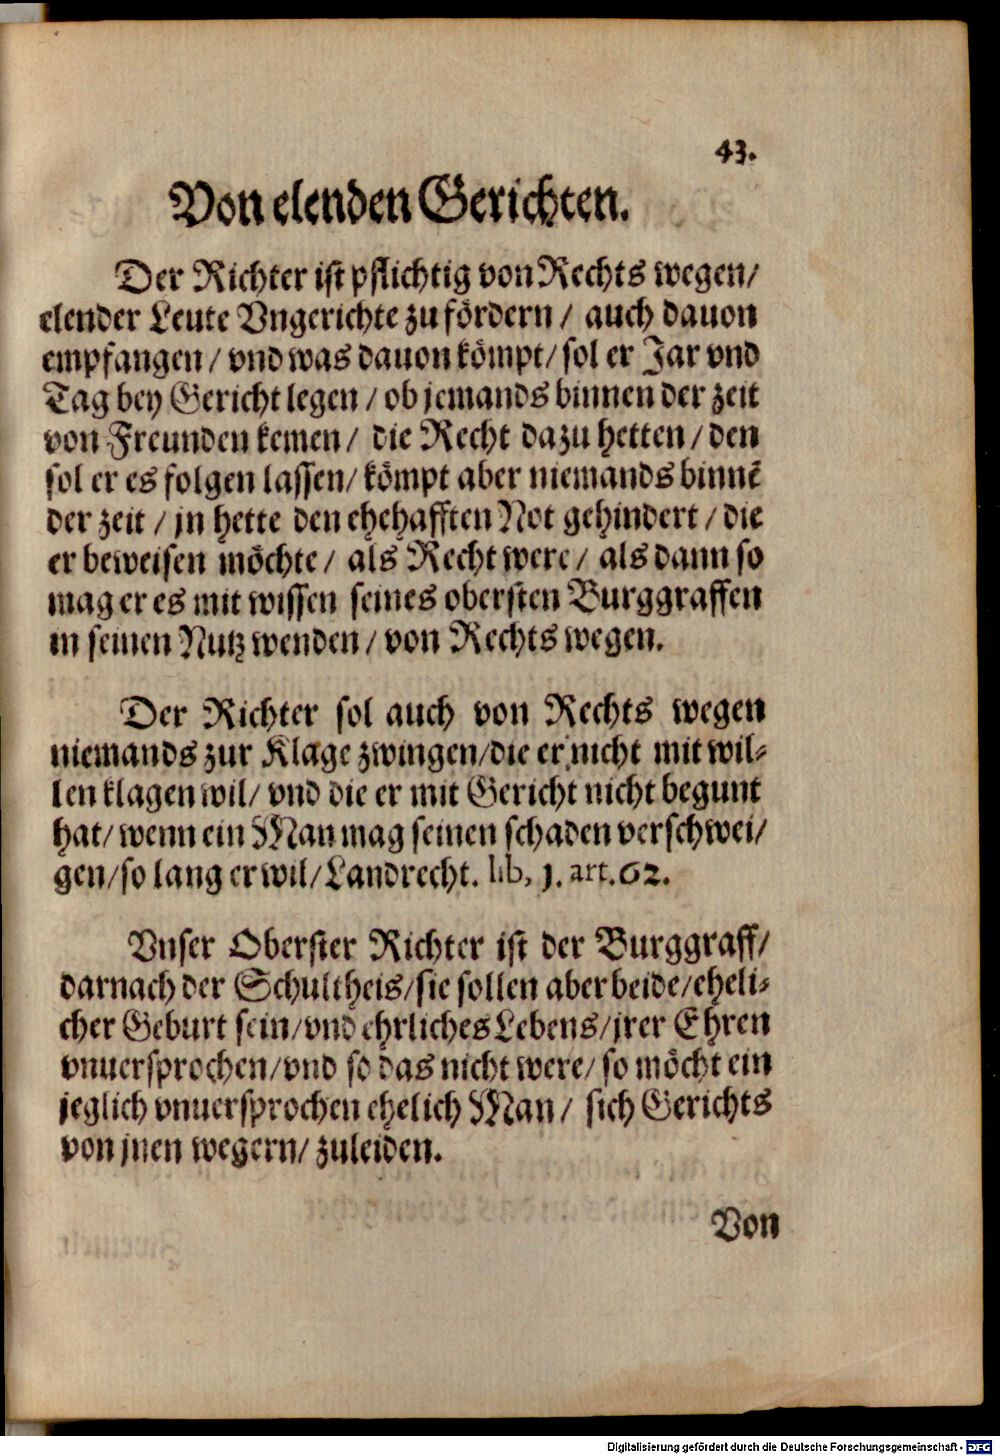 43.
Von elenden Gerichten.
Der Richter ist pflichtig von Rechts wegen/
elender Leute Vngerichte zu fördern / auch dauon
empfangen / vnd was dauon kömpt/ sol er Jar vnd
Tag bey Gericht legen / ob jemands binnen der zeit
von Freunden kemen / die Recht dazu hetten / den
sol er es folgen lassen/ kömpt aber niemands binnē
der zeit / jn hette den ehehafften Not gehindert / die
er beweisen möchte / als Recht were / als dann so
mag er es mit wissen seines obersten Burggraffen
in seinen Nutz wenden / von Rechts wegen.
Der Richter sol auch von Rechts wegen
niemands zur Klage zwingen/die er nicht mit wil-
len klagen wil/ vnd die er mit Gericht nicht begunt
hat/ wenn ein Man mag seinen schaden verschwei/
gen/so lang er wil/Landrecht. lib, j. art.62.
Vnser Oberster Richter ist der Burggraff/
darnach der Schultheis/sie sollen aber beide/eheli-
cher Geburt sein/vnd ehrliches Lebens/jrer Ehren
vnuersprochen/vnd so das nicht were/ so möcht ein
jeglich vnuersprochen ehelich Man / sich Gerichts
von jnen wegern/ zuleiden.
Von
Digitalisierung gefördert durch die Deutsche Forschungsgemeinschaft - DFG